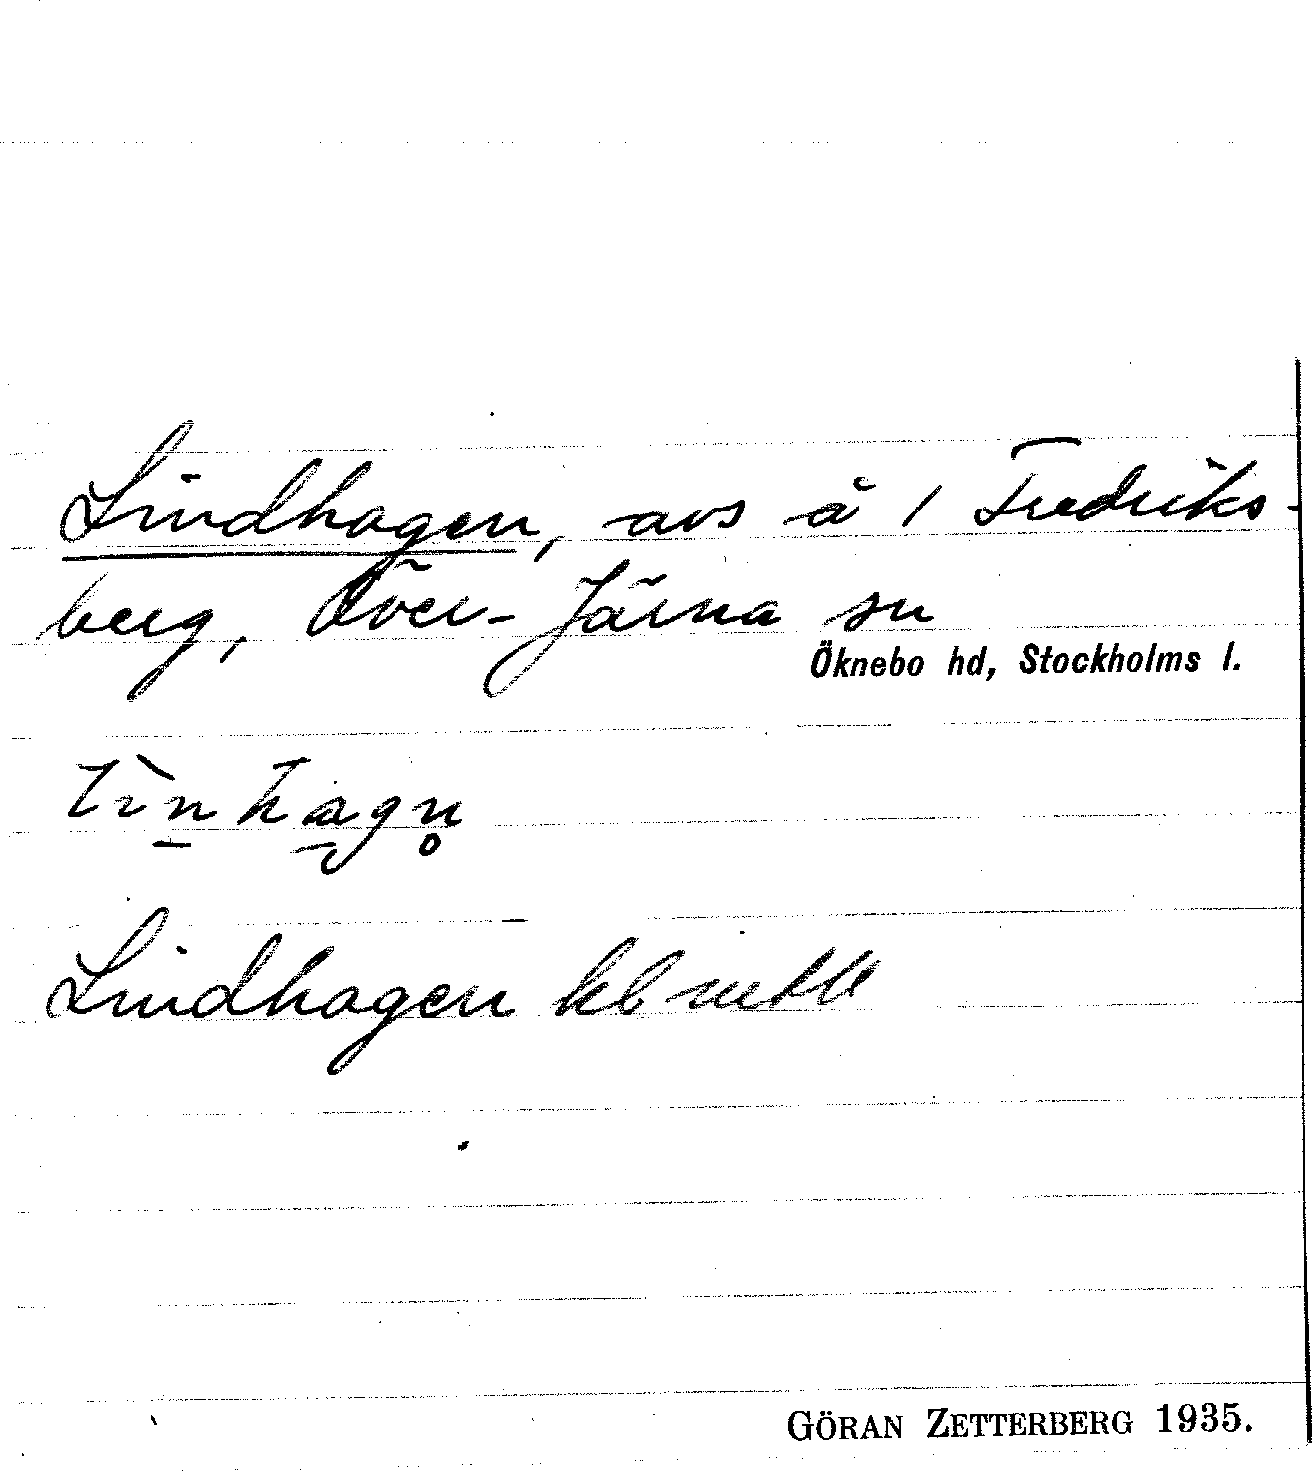 Lindhagen, avs å 1 Fredriks-
berg, Över-Järna sn
Öknebo hd, Stockholms l.
Lindhagen kb
GÖRAN ZETTERBERG 1935.